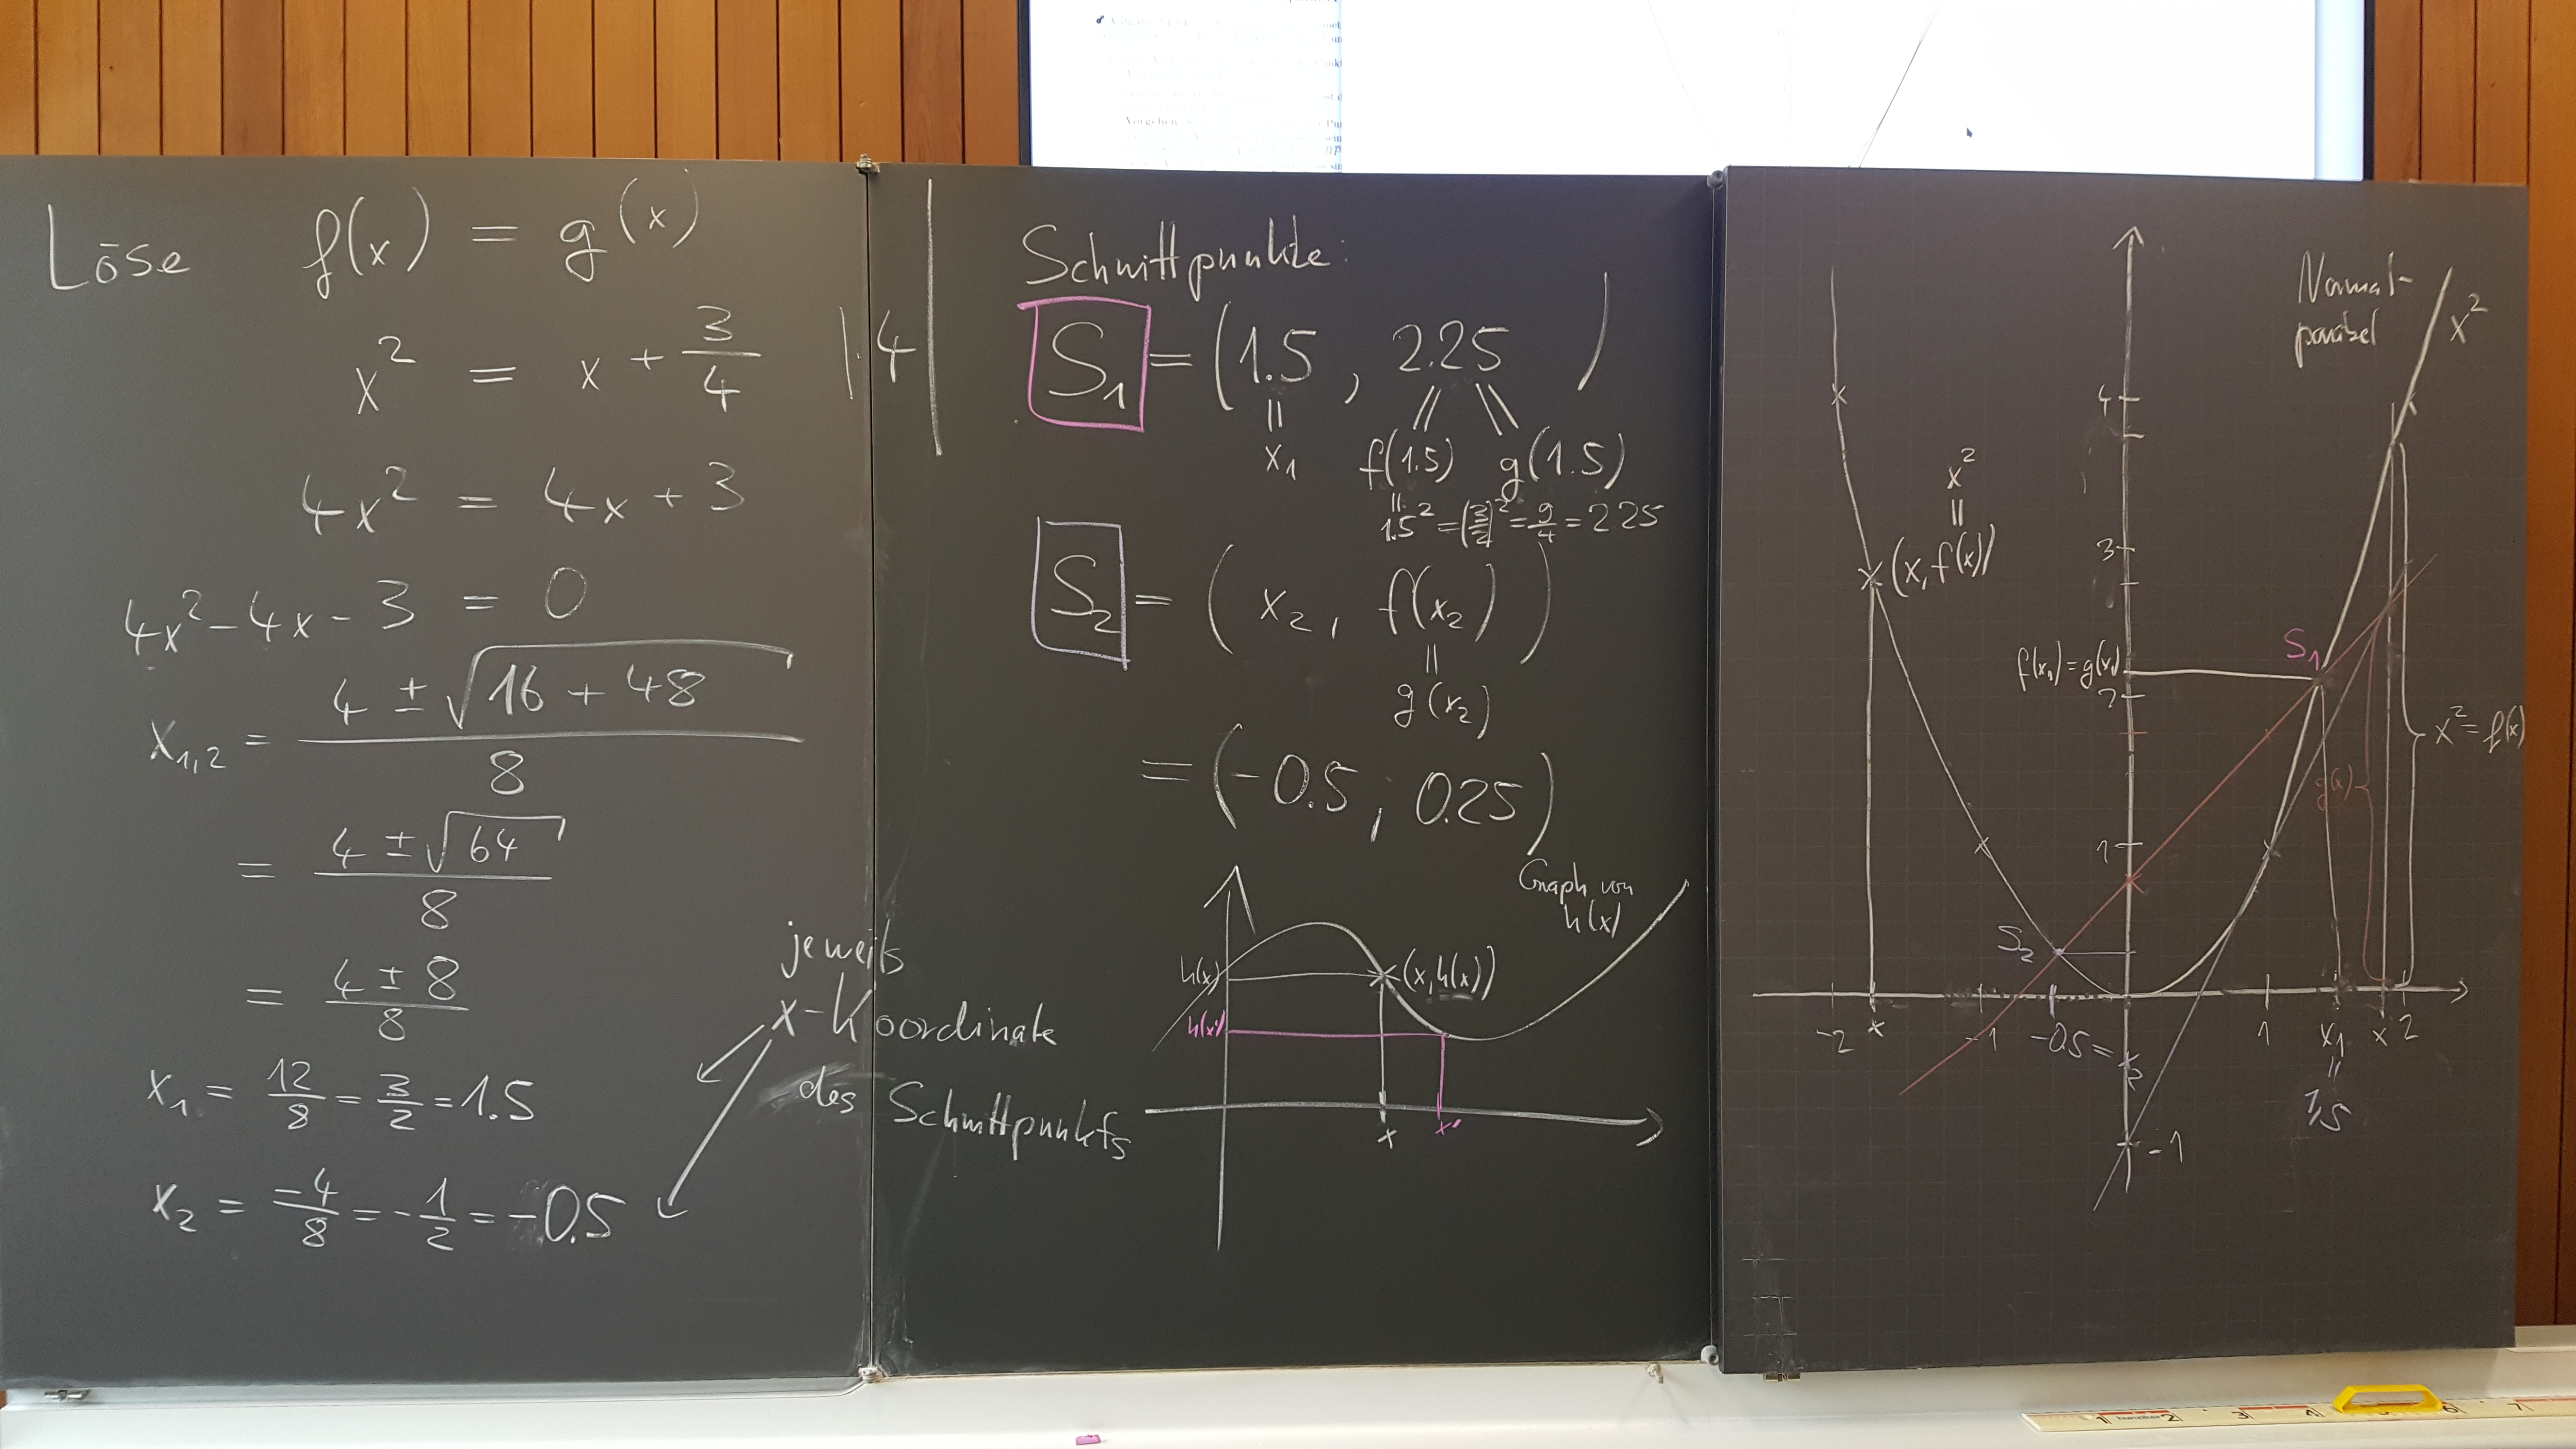 Löse f(x) = g(x)
x² = x + 3/4 |·4|
4x² = 4x + 3
4x² - 4x - 3 = 0
x₁,₂ = (4 ± √(16 + 48))/8
= (4 ± √64)/8
= (4 ± 8)/8
x₁ = 12/8 = 3/2 = 1.5
x₂ = -4/8 = -1/2 = -0.5
jeweils
x-Koordinate
des Schnittpunkts
Schnittpunkte:
S₁ = (1.5 , 2.25)
x₁ f(1.5) g(1.5)
1.5² = (3/2)² = 9/4 = 2.25
S₂ = (x₂, f(x₂))
g(x₂)
= (-0.5, 0.25)
Graph von
h(x)
h(x)
(x, h(x))
h(x')
x x'
Normal-
parabel
x²
4
x²
(x, f(x))
3
S₁
f(x₁) = g(x₁)
2
x² = f(x)
g(x)
1
S₂
-2 x -1 -0.5 = x₂ 1 x₁ x 2
1,5
-1
Vorgehen
1 2 3 4 5 6 7